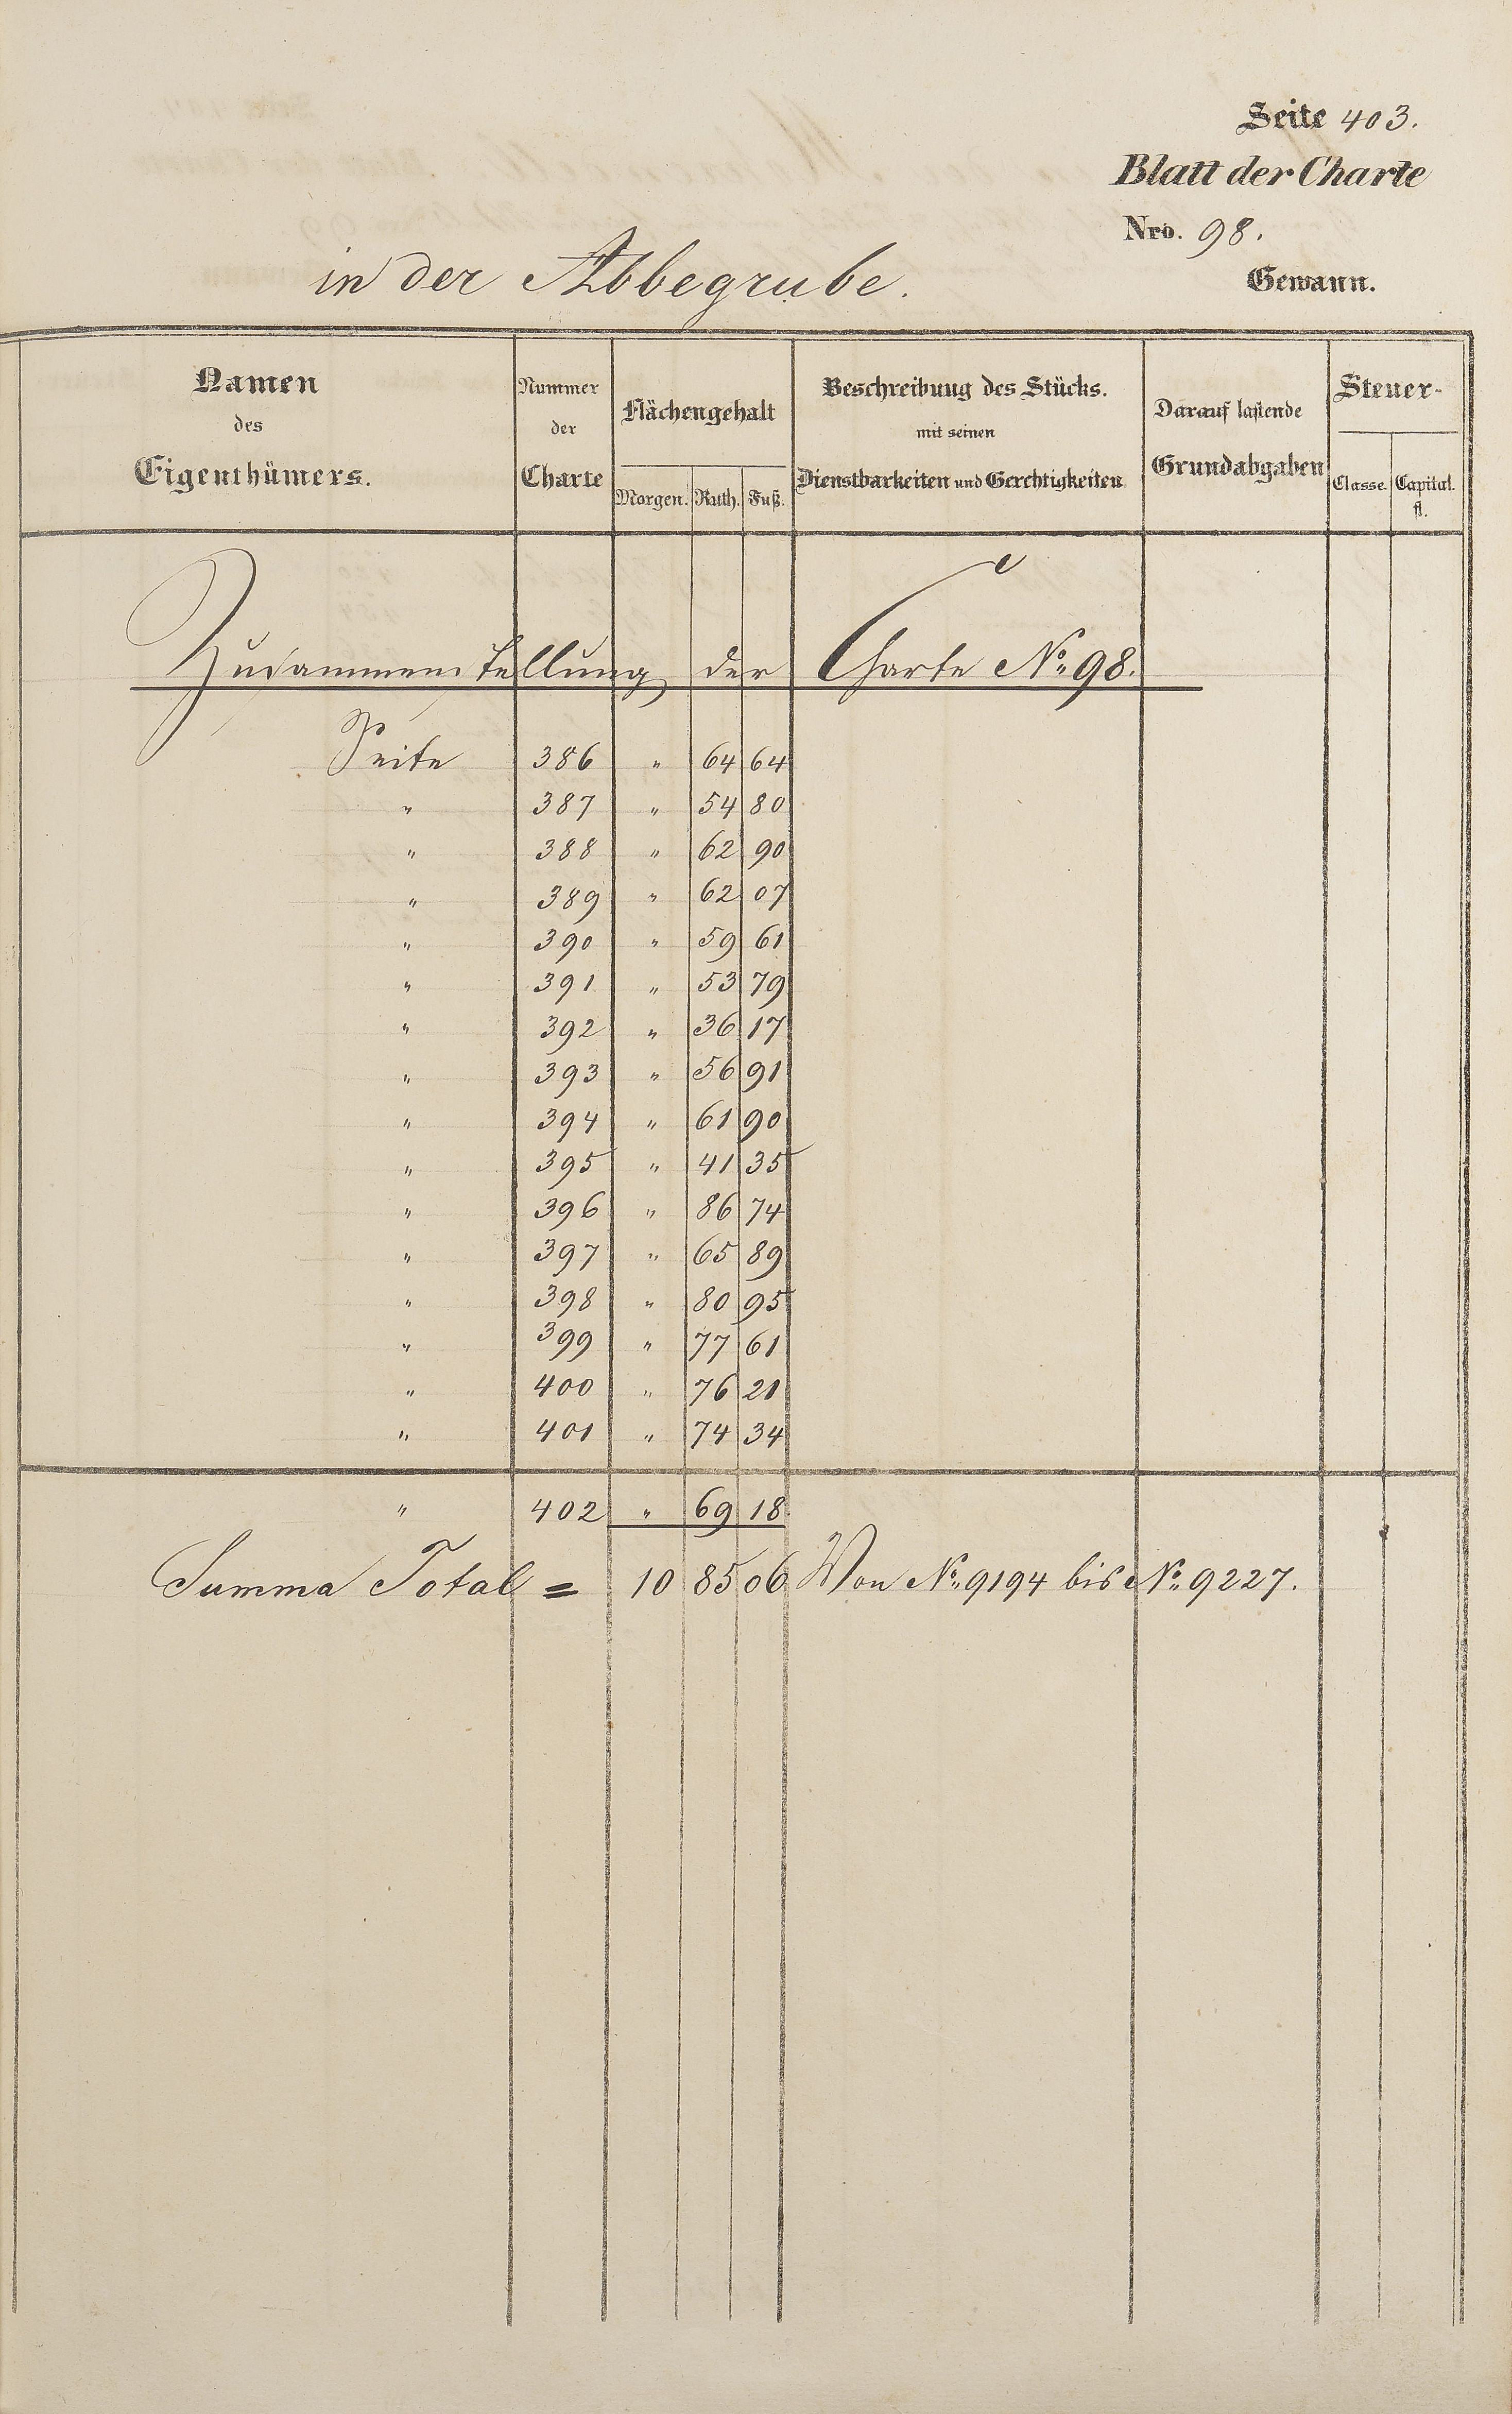 Seite 403.
Blatt der Charte
Nro. 98.
in der Abbegrube.
Gewann.
Namen
des
Eigenthümers.
Nummer
der
Charte
Flächengehalt
Morgen. Ruth. Fuß.
Beschreibung des Stücks.
mit seinen
Dienstbarkeiten und Gerechtigkeiten
Darauf lastende
Grundabgaben
Steuer-
Classe. Capital.
fl.
Zusammenstellung der Charte No. 98.
Seite 386 " 64 64
" 387 " 54 80
" 388 " 62 90
" 389 " 62 07
" 390 " 59 61
" 391 " 53 79
" 392 " 36 17
" 393 " 56 91
" 394 " 61 90
" 395 " 41 35
" 396 " 86 74
" 397 " 65 89
" 398 " 80 95
" 399 " 77 61
" 400 " 76 21
" 401 " 74 34
" 402 " 69 18
Summa Total = 10 85 06 Von No. 9194 bis No. 9227.